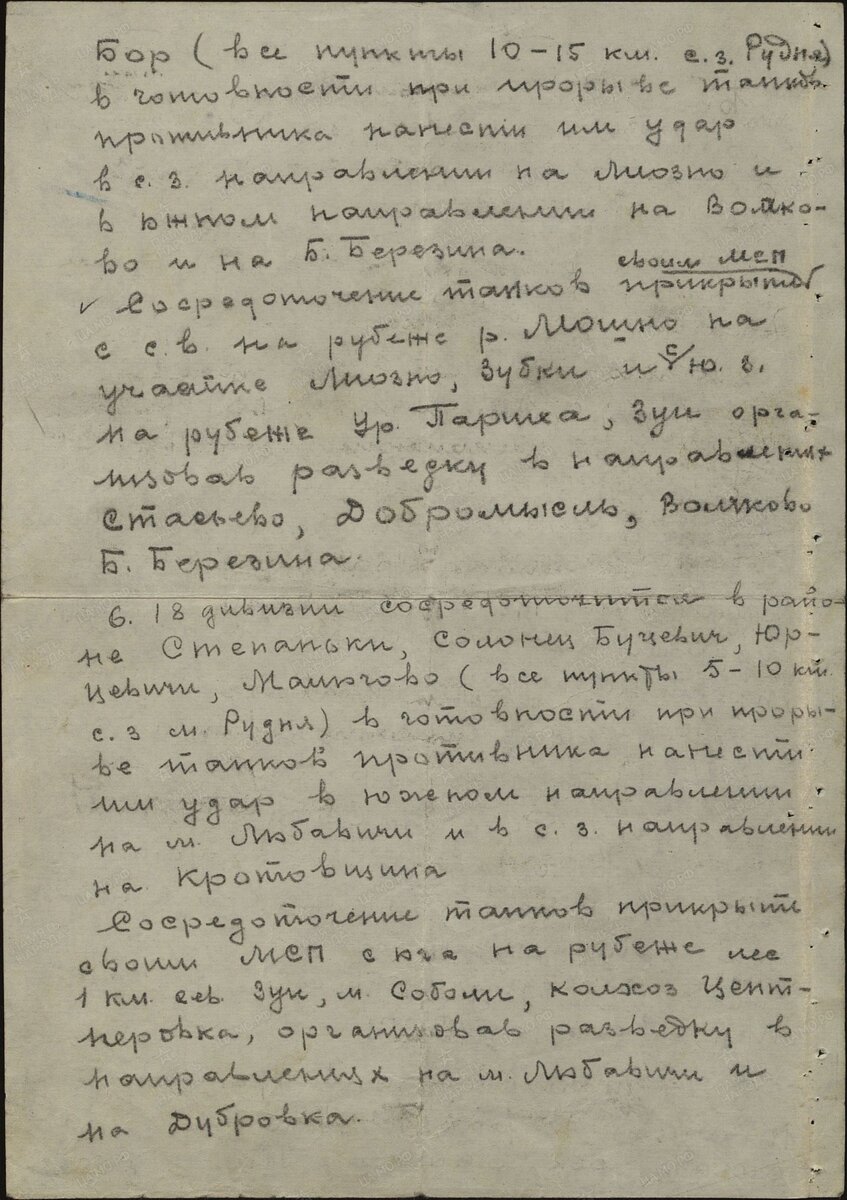 Бор (все пункты 10-15 км. с.з. Рудня)
в готовности при прорыве танков
противника нанести им удар
в с.з. направлении на Лиозно и
в южном направлении на Волко-
во и на Б. Березина.
своим МСП
Сосредоточение танков прикрыть
с с.в. на рубеже р. Мошно на
участке Лиозно, Зубки и с ю.з.
на рубеже Ур. Париха, Зуи орга-
низовав разведку в направлениях
Стасьево, Добромысль, Волково
Б. Березина.
6. 18 дивизии сосредоточится в райо-
не Степаньки, Солонец Буцевич, Юр-
цевичи, Малюгово (все пункты 5-10 км
с.з м. Рудня) в готовности при проры-
ве танков противника нанести
им удар в южном направлении
на м. Любавичи и в с.з. направлении
на Кротовщина
Сосредоточение танков прикрыть
своим МСП с юга на рубеже лес
1 км. сев. Зуи, м. Соболи, колхоз Цент-
неровка, организовав разведку в
направлениях на м. Любавичи и
на Дубровка.